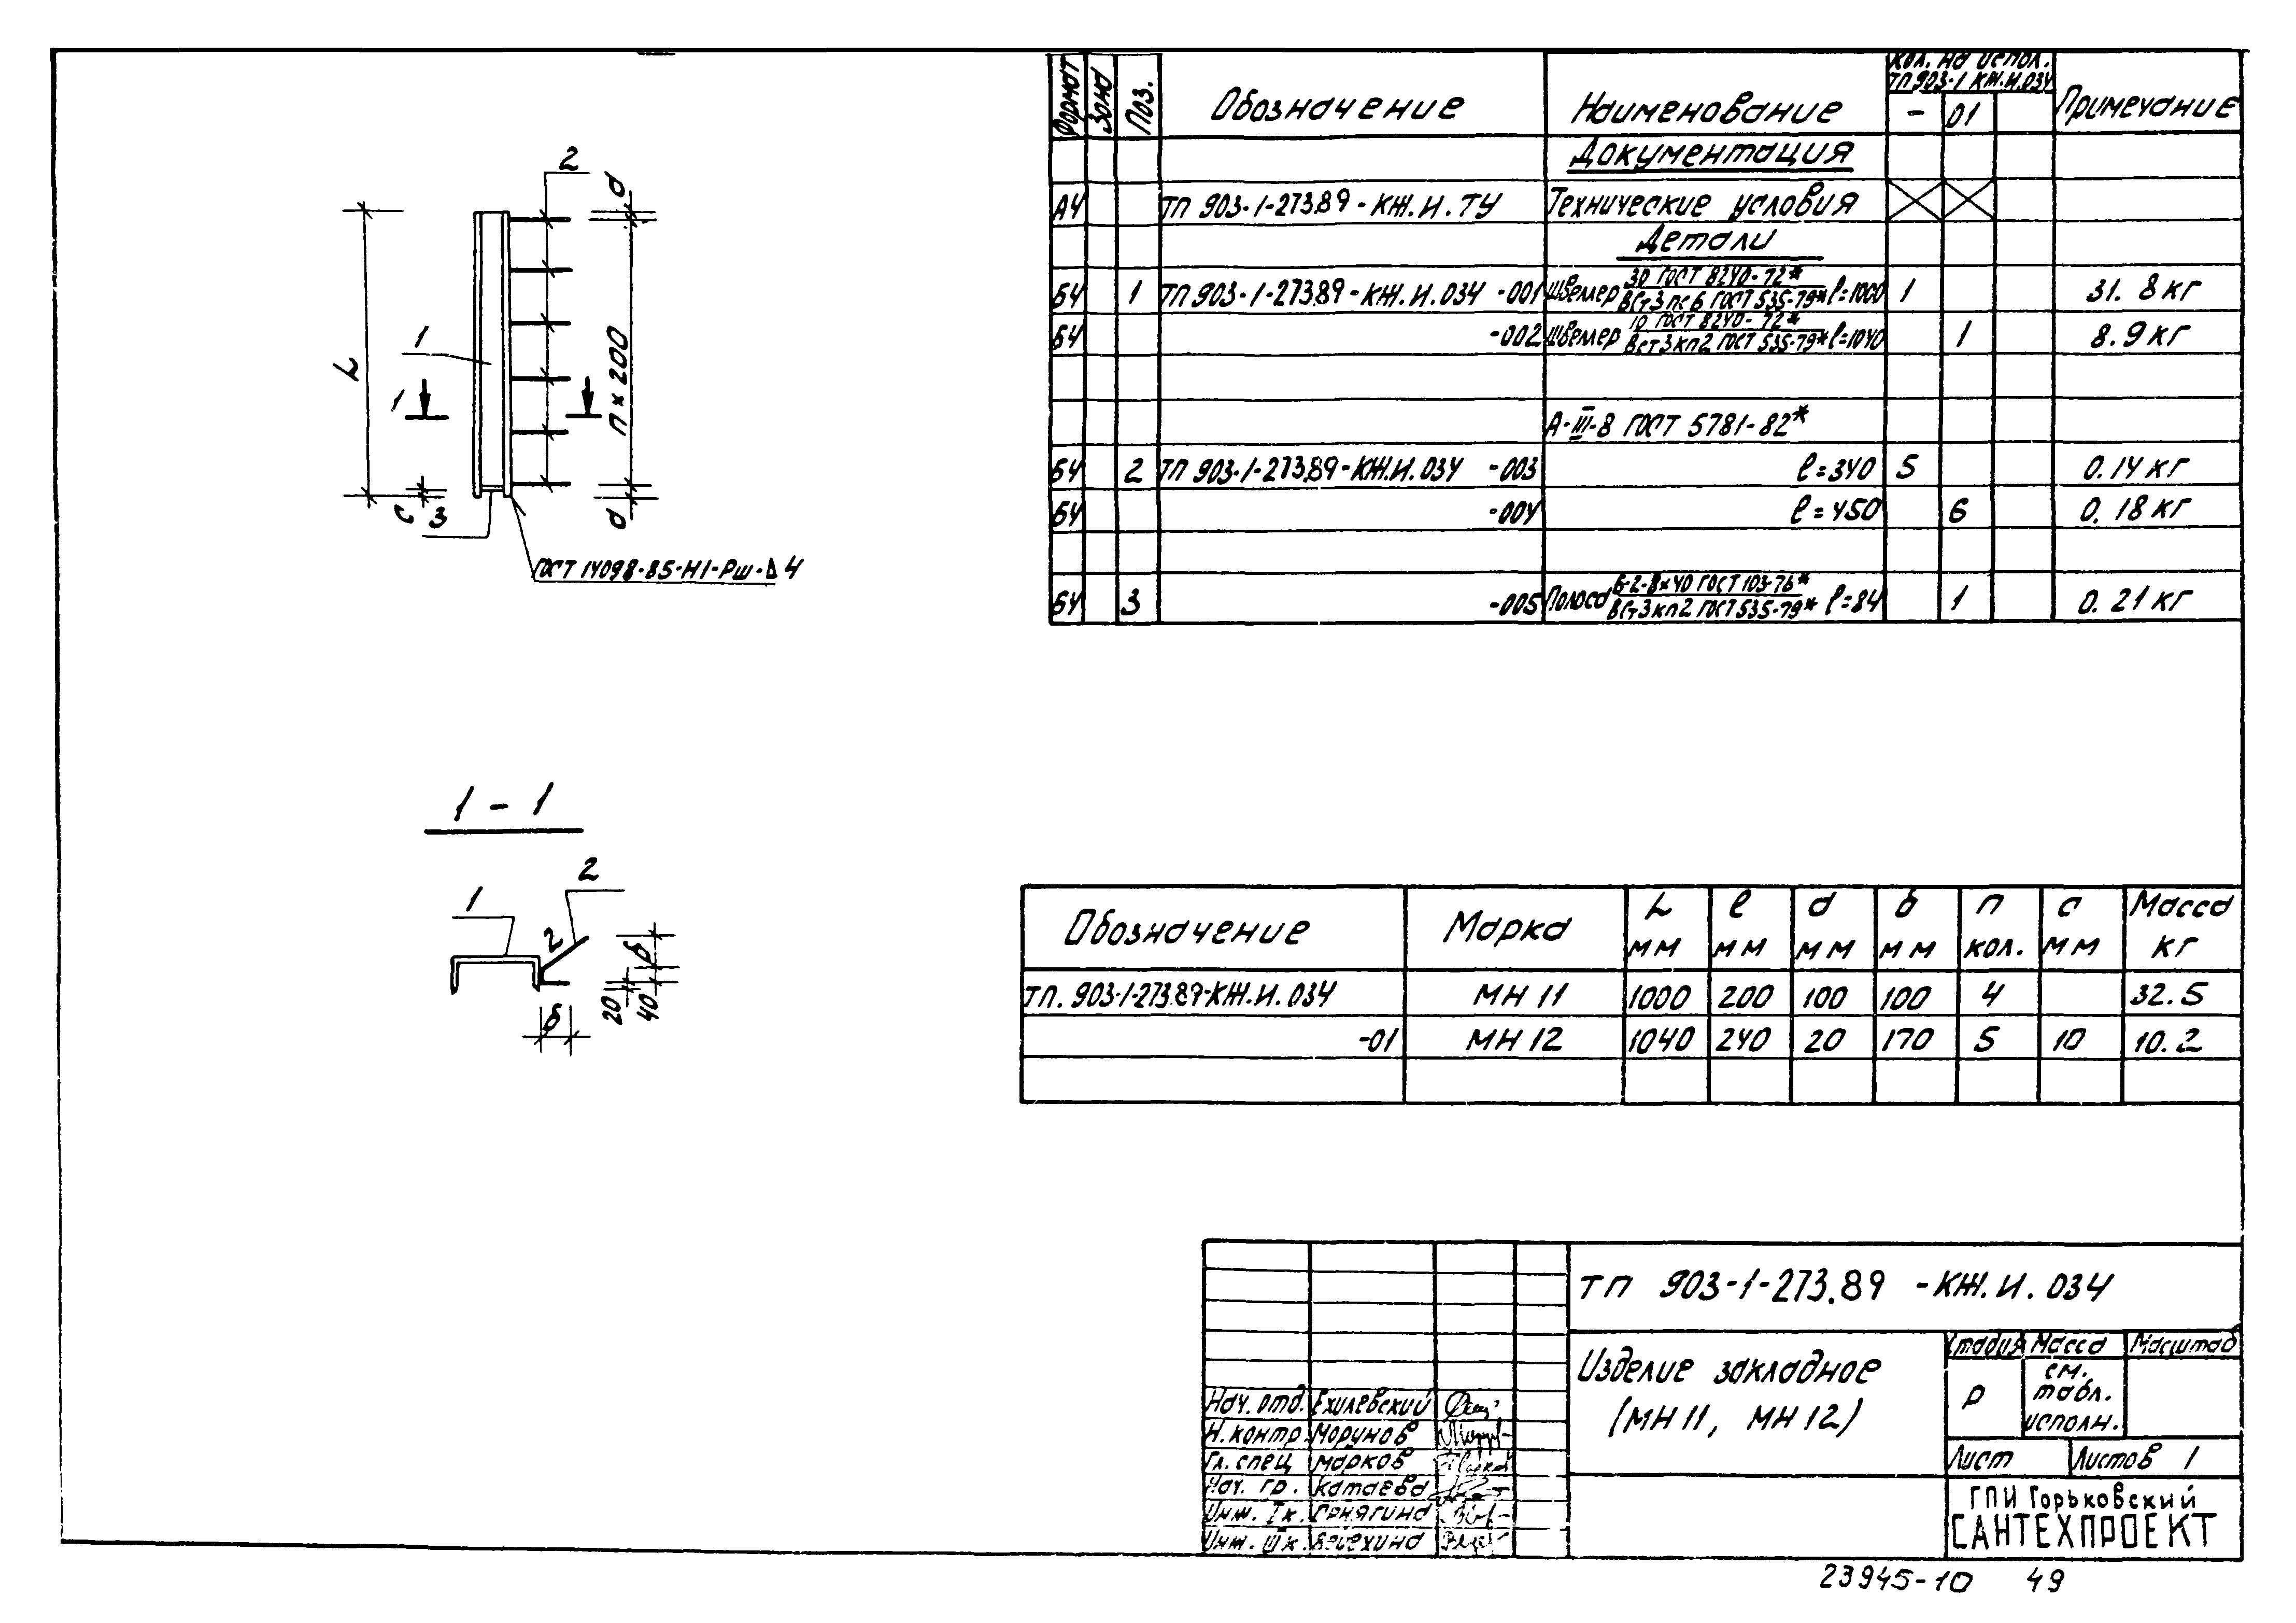 Формат Зона Поз. Обозначение Наименование Кол. на испол. ТП 903-1 КЖ.И.034 - 01 Примечание
Документация
А4 ТП 903-1-273.89-КЖ.И.ТУ Технические условия
Детали
Б4 1 ТП 903-1-273.89-КЖ.И.034 -001 Швеллер 30 ГОСТ 8240-72* / ВСт3пс6 ГОСТ 535-79* ℓ=1000 1 31.8 кг
Б4 -002 Швеллер 10 ГОСТ 8240-72* / ВСт3кп2 ГОСТ 535-79* ℓ=1040 1 8.9 кг
А-III-8 ГОСТ 5781-82*
Б4 2 ТП 903-1-273.89-КЖ.И.034 -003 ℓ=340 5 0.14 кг
Б4 -004 ℓ=450 6 0.18 кг
Б4 3 -005 Полоса Б-2-8×40 ГОСТ 103-76* / ВСт3кп2 ГОСТ 535-79* ℓ=84 1 0.21 кг
2
d
L
1
п×200
1
c
3
d
ГОСТ 14098-85-Н1-Рш-Δ 4
1 - 1
2
1
2
б
20
40
б
Обозначение Марка L мм ℓ мм d мм б мм п кол. с мм Масса кг
ТП. 903-1-273.89-КЖ.И.034 МН 11 1000 200 100 100 4 32.5
-01 МН 12 1040 240 20 170 5 10 10.2
ТП 903-1-273.89 -КЖ.И.034
Изделие закладное
(МН 11, МН 12)
Стадия Масса Масштаб
Р см. табл. исполн.
Лист Листов 1
Нач. отд. Ехилевский
Н. контр. Морунов
Гл. спец Марков
Нач. гр. Катаева
Инж. Iк.
Инж. IIк.
ГПИ Горьковский
САНТЕХПРОЕКТ
23945-10 49